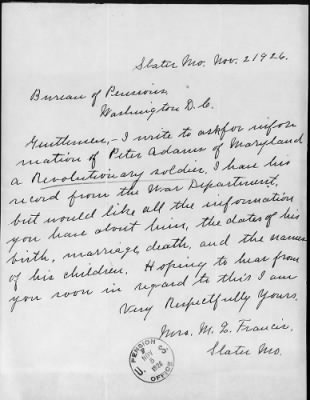 Slater Mo. Nov. 2 1926.
Bureau of Pensions,
Washington D.C.
Gentlemen,- I write to ask for infor
mation of Peter Adams of Maryland
a Revolutionary soldier. I have his
record from the War Department,
but would like all the information
you have about him, the dates of his
birth, marriage, death, and the names
of his children. Hoping to hear from
you soon in regard to this I am
Very Respectfully Yours.
Mrs. M. L. Francis.
Slater Mo.
PENSION
U. S.
NOV
5
1926
OFFICE